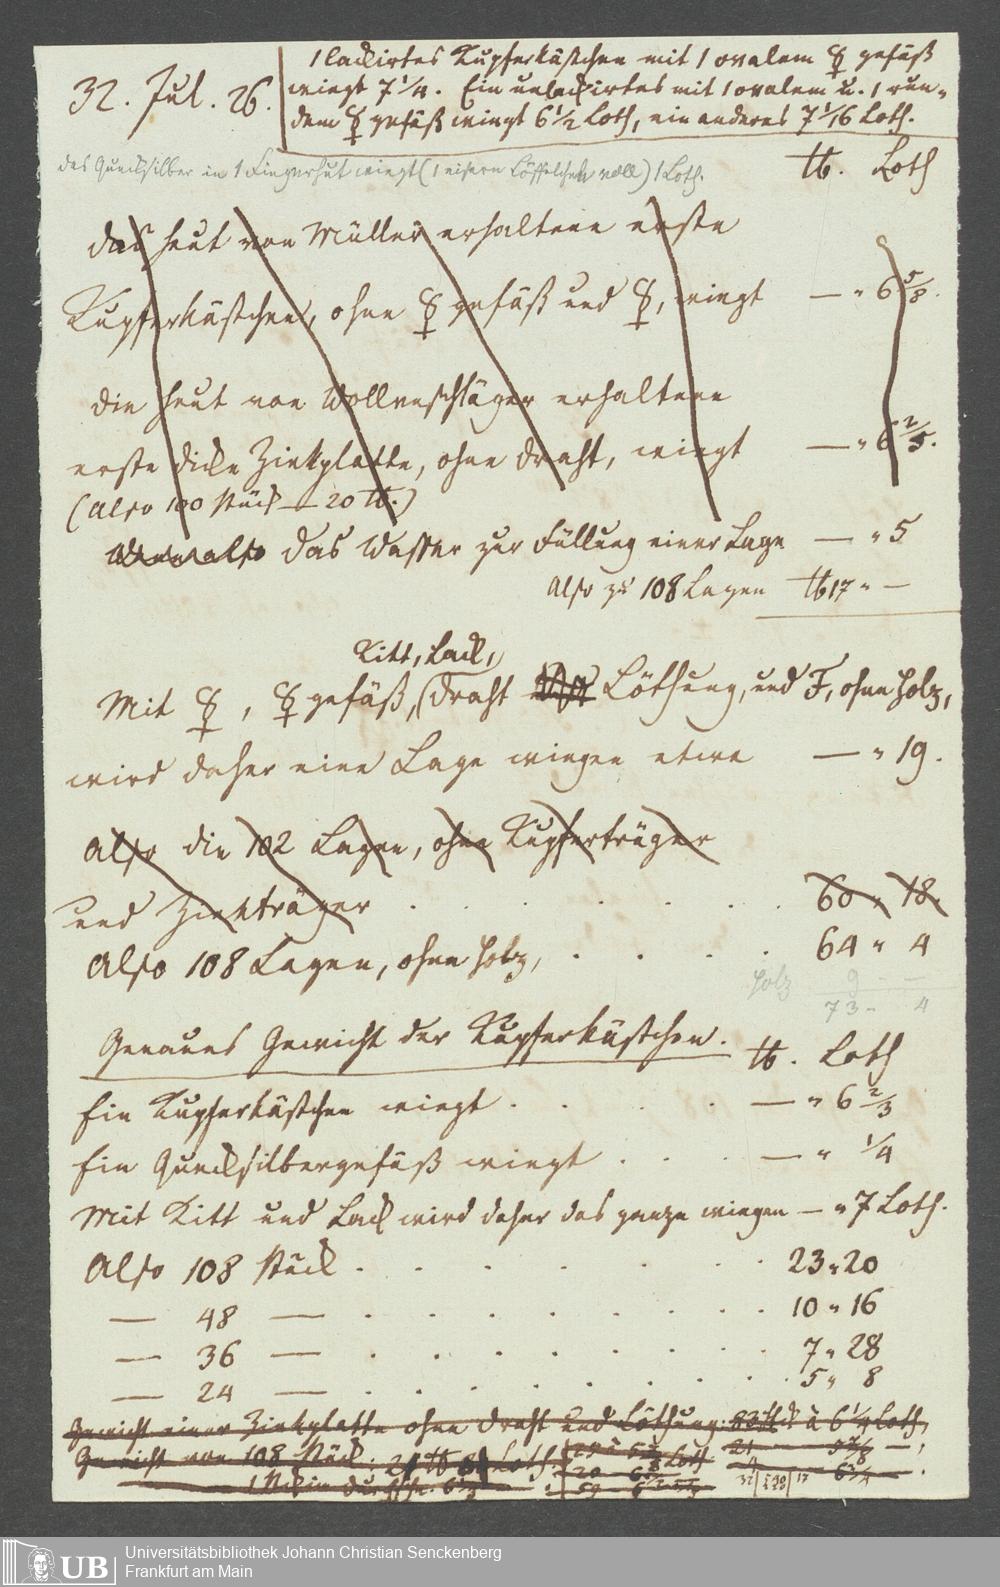 32. Jul. 26.
1 lackirtes Kupferkästchen mit 1 ovalem ☿ gefäß
wiegt 7 1/4. Ein unlackirtes mit 1 ovalem u. 1 run-
dem ☿ gefäß wiegt 6 1/2 Loth, ein anderes 7 1/16 Loth.
das Quecksilber in 1 Fingerhut wiegt (1 eisern Löffelchen voll) 1 Loth.
℔. Loth
das heut von Müller erhaltene erste
Kupferkästchen, ohne ☿ gefäß und ☿, wiegt — „ 6 5/8.
die heut von Wollenschläger erhaltene
erste dicke Zinkplatte, ohne Draht, wiegt — „ 6 2/5.
(Also 100 Stück — 20 ℔.)
also das Wasser zur Füllung einer Lage — „ 5
Also zu 108 Lagen ℔ 17 „ —
Kitt, Lack,
Mit ☿, ☿ gefäß, Draht Löthung, und F, ohne Holz,
wird daher eine Lage wiegen etwa — „ 19.
Also die 102 Lagen, ohne Kupferträger
und Zinkträger . . . . . . . 60 „ 18.
Also 108 Lagen, ohne Holz, . . . . 64 „ 4
Holz 9 - —
73 - 4
Genaues Gewicht der Kupferkästchen. ℔. Loth
Ein Kupferkästchen wiegt . . . . — „ 6 2/3
Ein Quecksilbergefäß wiegt . . . — „ 1/4
Mit Kitt und Lack wird daher das ganze wiegen — „ 7 Loth.
Also 108 Stück . . . . . . 23 „ 20
— 48 — . . . . . . . 10 „ 16
— 36 — . . . . . . . 7 „ 28
— 24 — . . . . . . . 5 „ 8
Gewicht einer Zinkplatte ohne Draht und Löthung: 6 1/4 Loth,
Gewicht von 108 Stück: Loth
UB Universitätsbibliothek Johann Christian Senckenberg
Frankfurt am Main